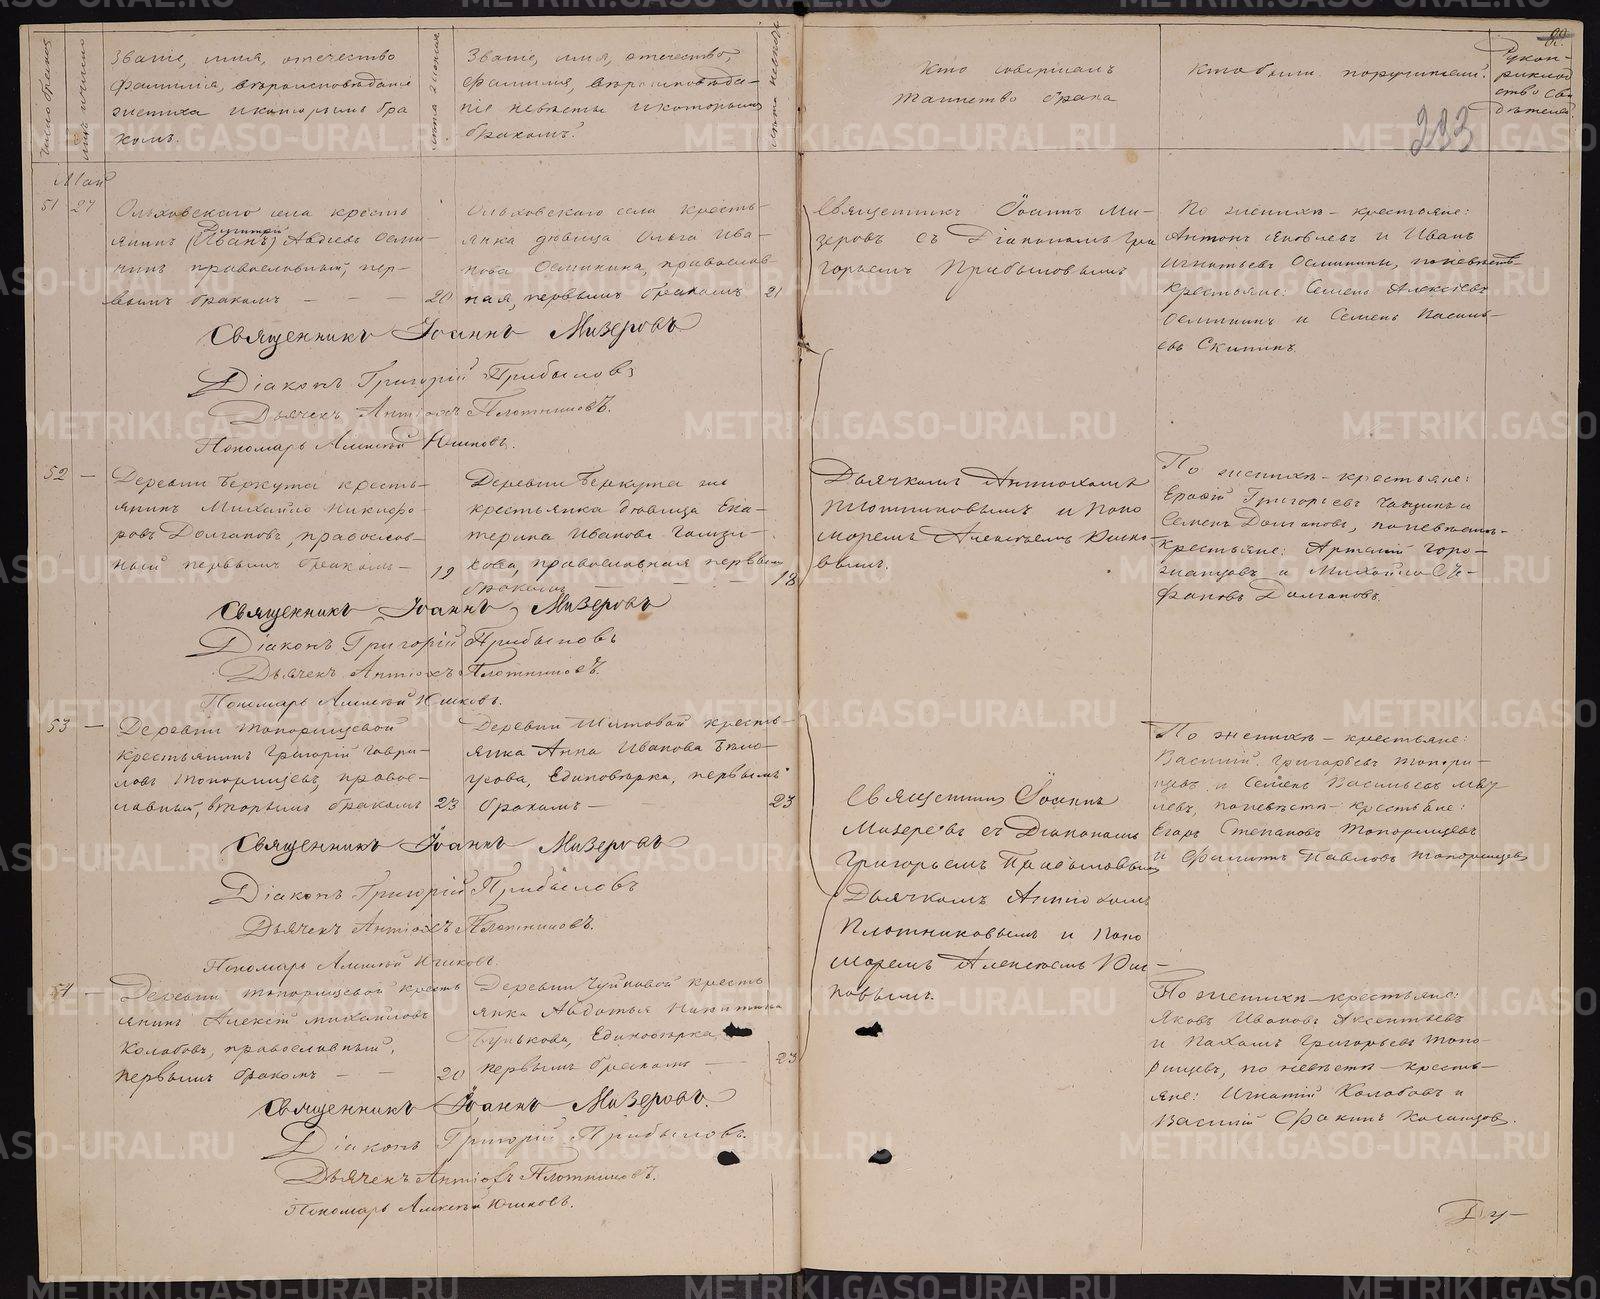 Званіе, имя, отечество
фамилія, вѣроисповѣданіе
жениха и которымъ бра
комъ.
Званіе, имя, отечество,
фамилія, вѣроисповѣда-
ніе невѣсты и которымъ
бракомъ.
Кто совершалъ
таинство брака
Кто были поручители.
Рукоп-
рикладство сви
дѣтелей
233
Май
51 27
Ольховскаго села кресть
Димитрій
янинъ (Иванъ) Авдіевъ Осми-
нинъ православный, пер-
вымъ бракомъ — — — 20
Ольховскаго села кресть-
янка дѣвица Ольга Ива-
нова Осминина, православ
ная, первымъ бракомъ 21
Священникъ Іоаннъ Ми-
зеровъ съ Діакономъ Гри
горьемъ Прибыловымъ
По женихѣ - крестьяне:
Антонъ Яковлевъ и Иванъ
Игнатьевъ Осминины, по невѣстѣ-
крестьяне: Семенъ Алексѣевъ
Осмининъ и Семенъ Василь-
евъ Скипинъ.
Священникъ Іоаннъ Мизеровъ
Діаконъ Григорій Прибыловъ
Дьячекъ Антіохъ Плотниковъ.
Пономарь Алексѣй Юшковъ.
52 —
Деревни Беркута кресть-
янинъ Михайло Никифо-
ровъ Долгановъ, православ-
ный первымъ бракомъ- 19
Деревни Беркута же
крестьянка дѣвица Ека-
терина Иванова
кова, православная первымъ
бракомъ — — 18
Дьячкомъ Антіохомъ
Плотниковымъ и Поно
маремъ Алексѣемъ Юшко-
вымъ.
По женихѣ - крестьяне:
Григорьевъ и
Семенъ Долгановъ, по невѣстѣ-
крестьяне:
и Михайло Сте-
фановъ Долгановъ.
Священникъ Іоаннъ Мизеровъ
Діаконъ Григорій Прибыловъ
Дьячекъ Антіохъ Плотниковъ.
Пономарь Алексѣй Юшковъ.
53 —
Деревни Топорищевой
крестьянинъ Григорій Гаври-
ловъ Топорищевъ, правос-
лавный, вторымъ бракомъ 23
Деревни Шитовой кресть-
янка Анна Иванова Бѣло-
усова, Единовѣрка, первымъ
бракомъ — 23
Священникъ Іоаннъ
Мизеровъ съ Діакономъ
Григорьемъ Прибыловымъ
Дьячкомъ Антіохомъ
Плотниковымъ и Поно
маремъ Алексѣемъ Юш-
ковымъ.
По женихѣ - крестьяне:
Василій Григорьевъ Топори-
щевъ и Семенъ Васильевъ
по невѣстѣ - крестьяне:
Егоръ Степановъ Топорищевъ
и Филиппъ Павловъ Топорищевъ
Священникъ Іоаннъ Мизеровъ
Діаконъ Григорій Прибыловъ
Дьячекъ Антіохъ Плотниковъ.
Пономарь Алексѣй Юшковъ.
54 —
Деревни Топорищевой кресть
янинъ Алексѣй Михайловъ
Колобовъ, православный,
первымъ бракомъ — — 20
Деревни Чупиной кресть
янка Авдотья Никитина
Бунькова, Единовѣрка,
первымъ бракомъ — 23
По женихѣ - крестьяне:
Яковъ Ивановъ Аксентьевъ
и Пахомъ Григорьевъ Топо-
рищевъ, по невѣстѣ - кресть-
яне: Игнатій Колобовъ и
Василій
Священникъ Іоаннъ Мизеровъ.
Діаконъ Григорій Прибыловъ.
Дьячекъ Антіохъ Плотниковъ.
Пономарь Алексѣй Юшковъ.
METRIKI.GASO-URAL.RU